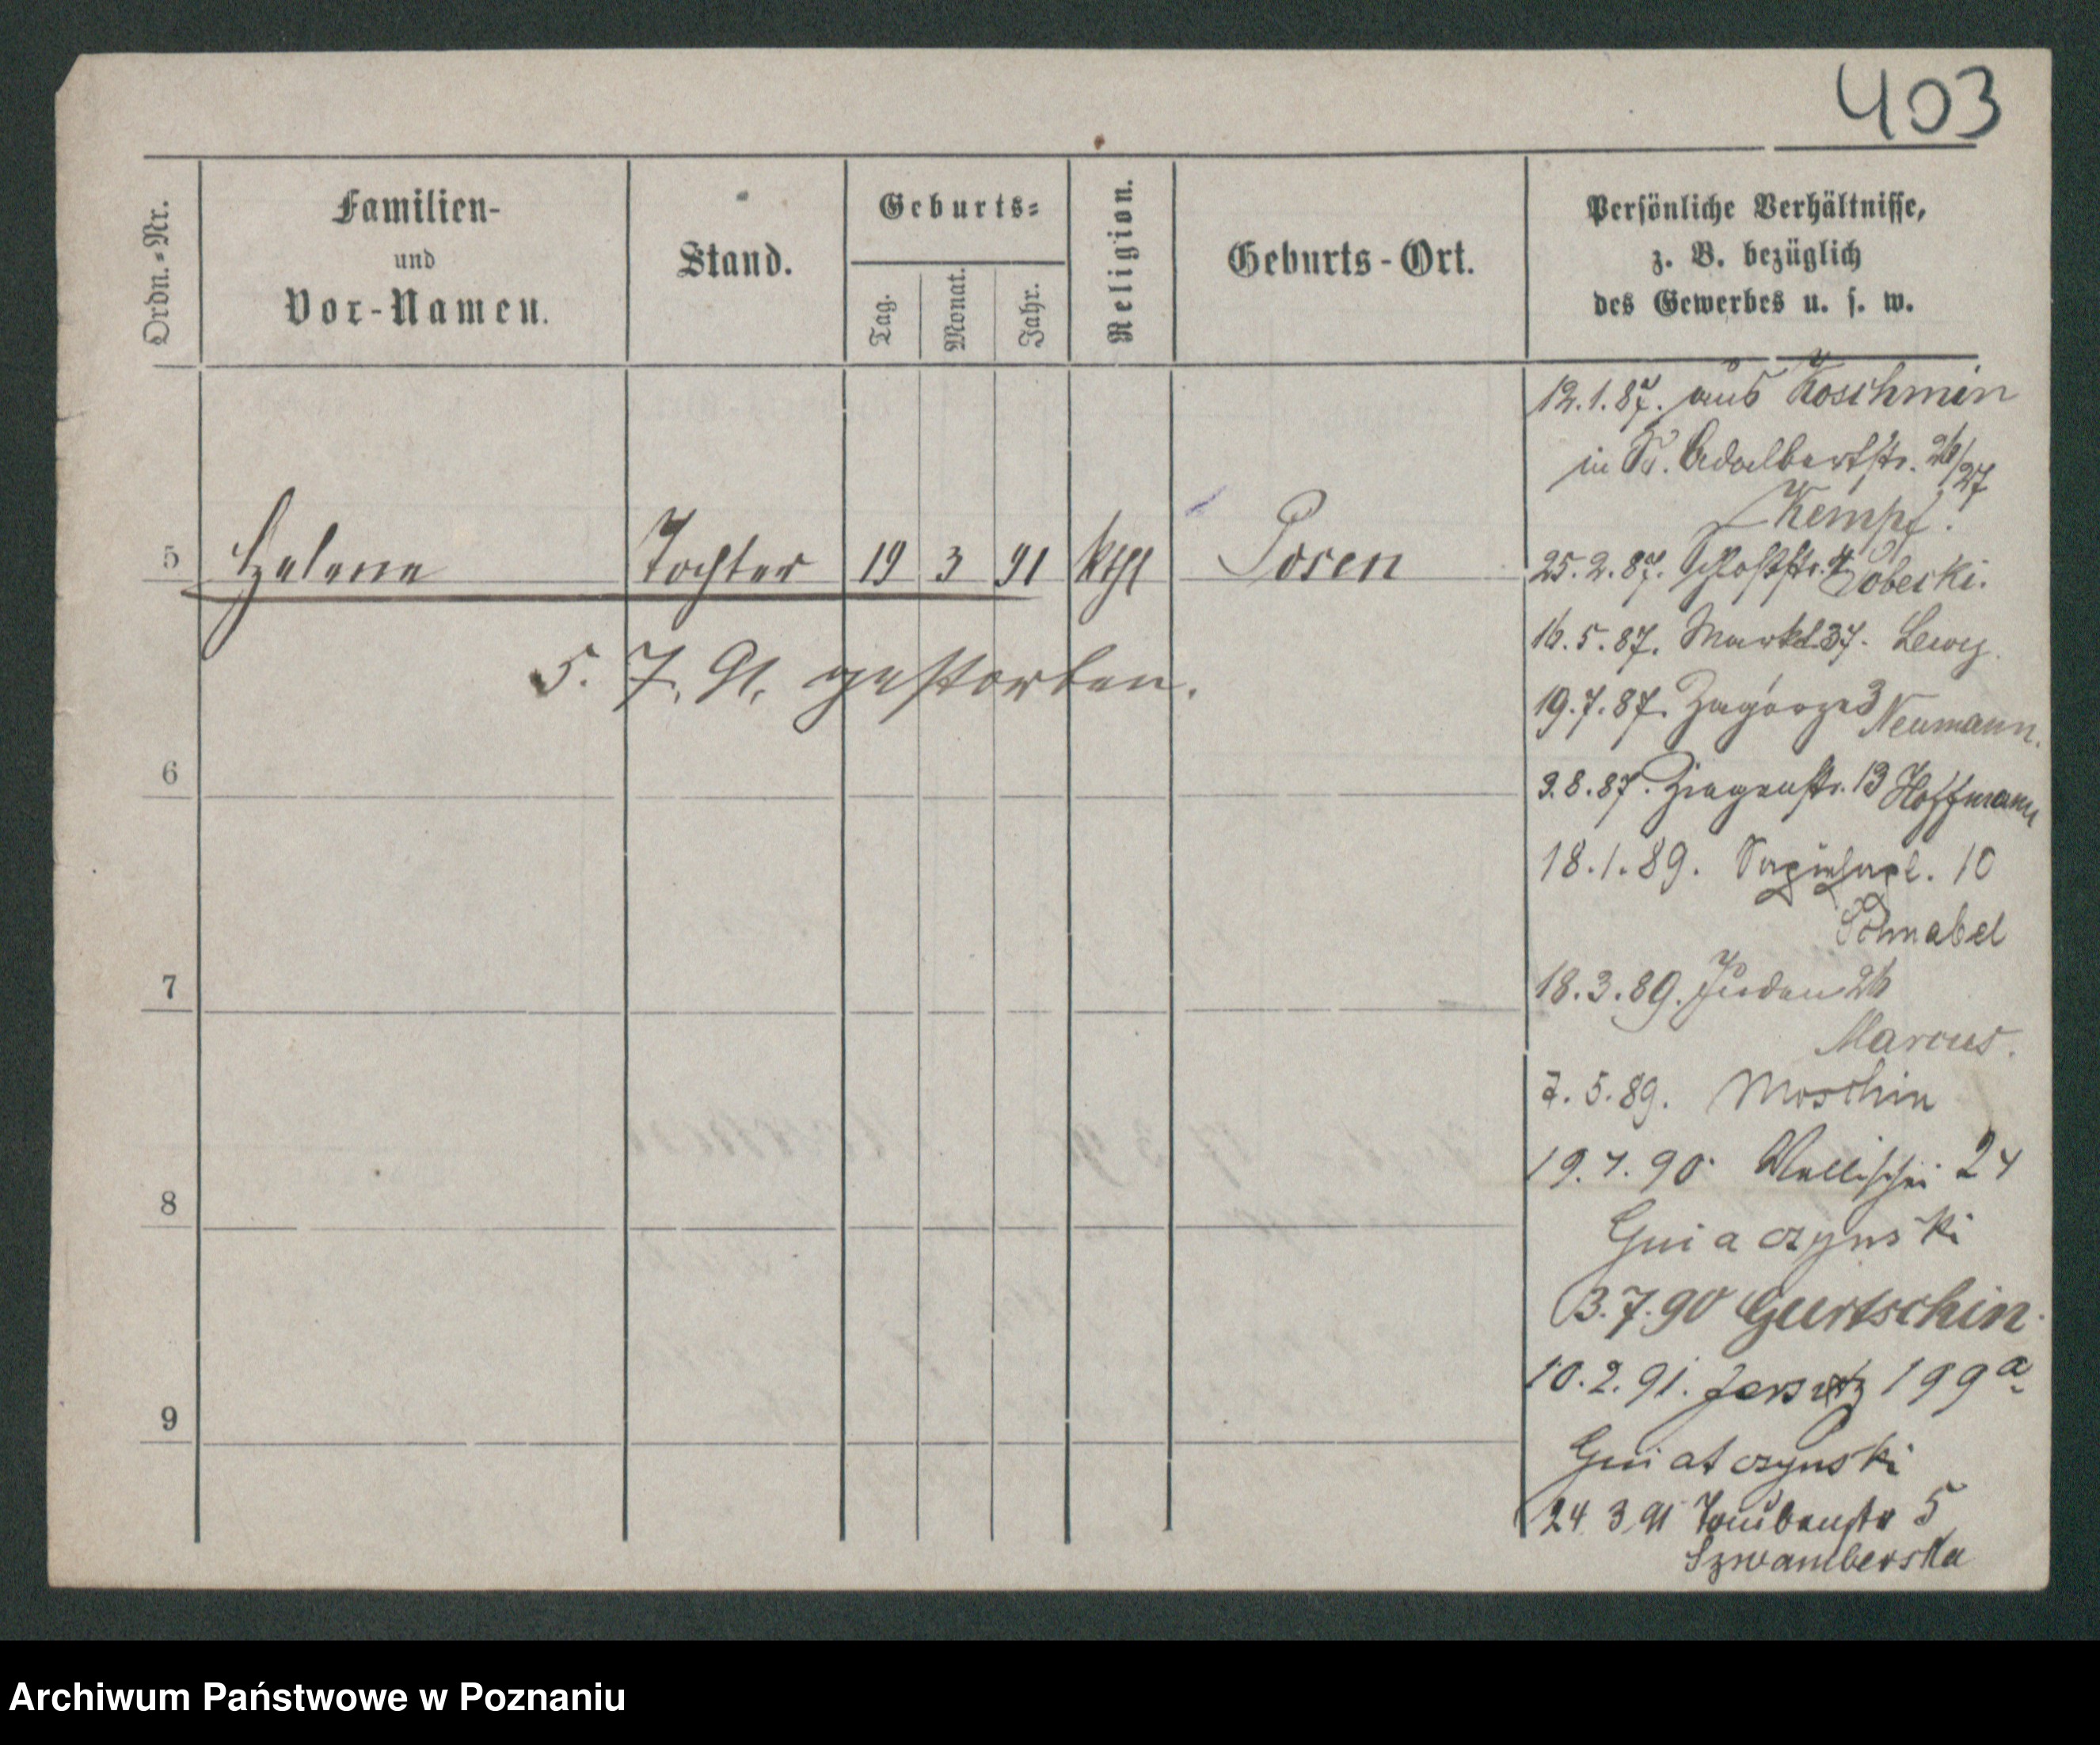 403
Ordn.-Nr.
Familien-
und
Vor-Namen.
Stand.
Geburts-
Tag.
Monat.
Jahr.
Religion.
Geburts-Ort.
Persönliche Verhältnisse,
z. B. bezüglich
des Gewerbes u. s. w.
5 Helene Tochter 19 3 91 kthl Posen
5. 7. 91. gestorben.
6
7
8
9
12.1.87. aus Koschmin
in St. Adalbertstr. 26/27
Kempf.
25.2.87. Schloßstr. 4 Sobecki.
16.5.87. Markt 37. Lewy.
19.7.87. Zagórze 3 Neumann.
9.8.87. Ziegenstr. 13 Hoffmann
18.1.89. Sapiehapl. 10
Schnabel
18.3.89. Juden 26
Marcus.
7.5.89. Moschin
19.4.90 Wallischei 24
Gniaczynski
3.7.90 Gurtschin.
10.2.91. Jersitz 199a
Gniatczynski
24 3 91 Taubenstr 5
Szwamberska
Archiwum Państwowe w Poznaniu